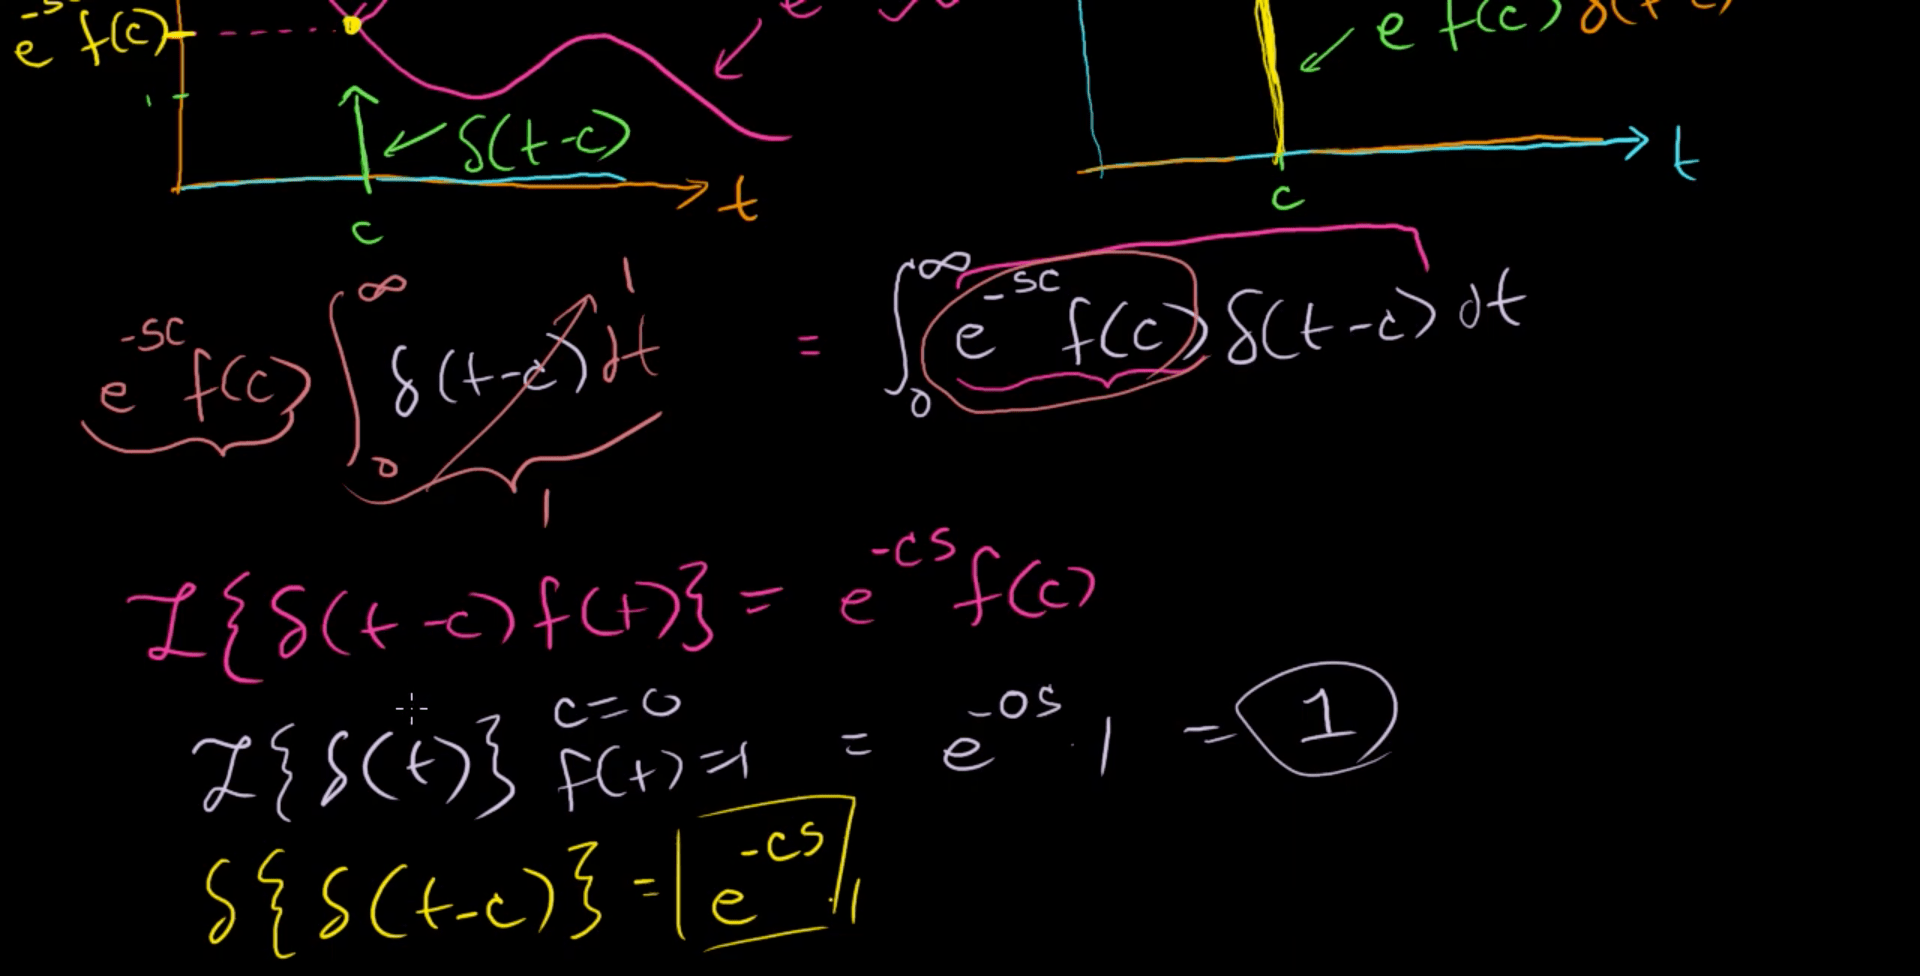 e^{-sc} f(c)
e f(c) δ(t-c)
δ(t-c)
t
t
c
c
e^{-sc} f(c) ∫_0^∞ δ(t-c) dt 1 = ∫_0^∞ e^{-sc} f(c) δ(t-c) dt
1
ℒ{δ(t-c) f(t)} = e^{-cs} f(c)
ℒ{δ(t)} c=0 f(t)=1 = e^{-0s} · 1 = 1
δ{δ(t-c)} = e^{-cs} · 1